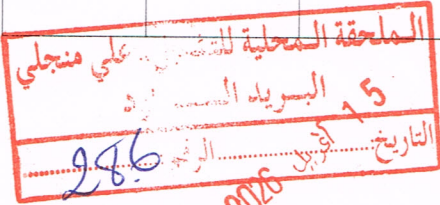 الملحقة المحلية للتشغيل علي منجلي
البريد الصادر
التاريخ 15 أفريل 2026 الرقم 286